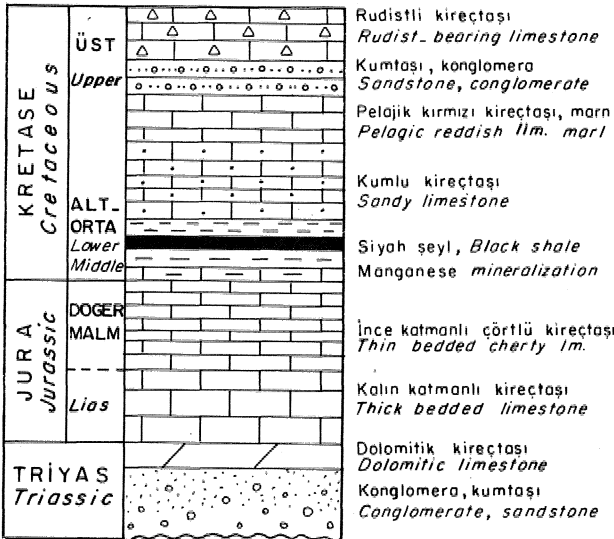 KRETASE
Cretaceous
ÜST
Upper
ALT_
ORTA
Lower
Middle
JURA
Jurassic
DOGER
MALM
Lias
TRİYAS
Triassic
Rudistli kireçtaşı
Rudist_ bearing limestone
Kumtaşı, konglomera
Sandstone, conglomerate
Pelajik kırmızı kireçtaşı, marn
Pelagic reddish lim. marl
Kumlu kireçtaşı
Sandy limestone
Siyah şeyl, Black shale
Manganese mineralization
İnce katmanlı çörtlü kireçtaşı
Thin bedded cherty lm.
Kalın katmanlı kireçtaşı
Thick bedded limestone
Dolomitik kireçtaşı
Dolomitic limestone
Konglomera, kumtaşı
Conglomerate, sandstone